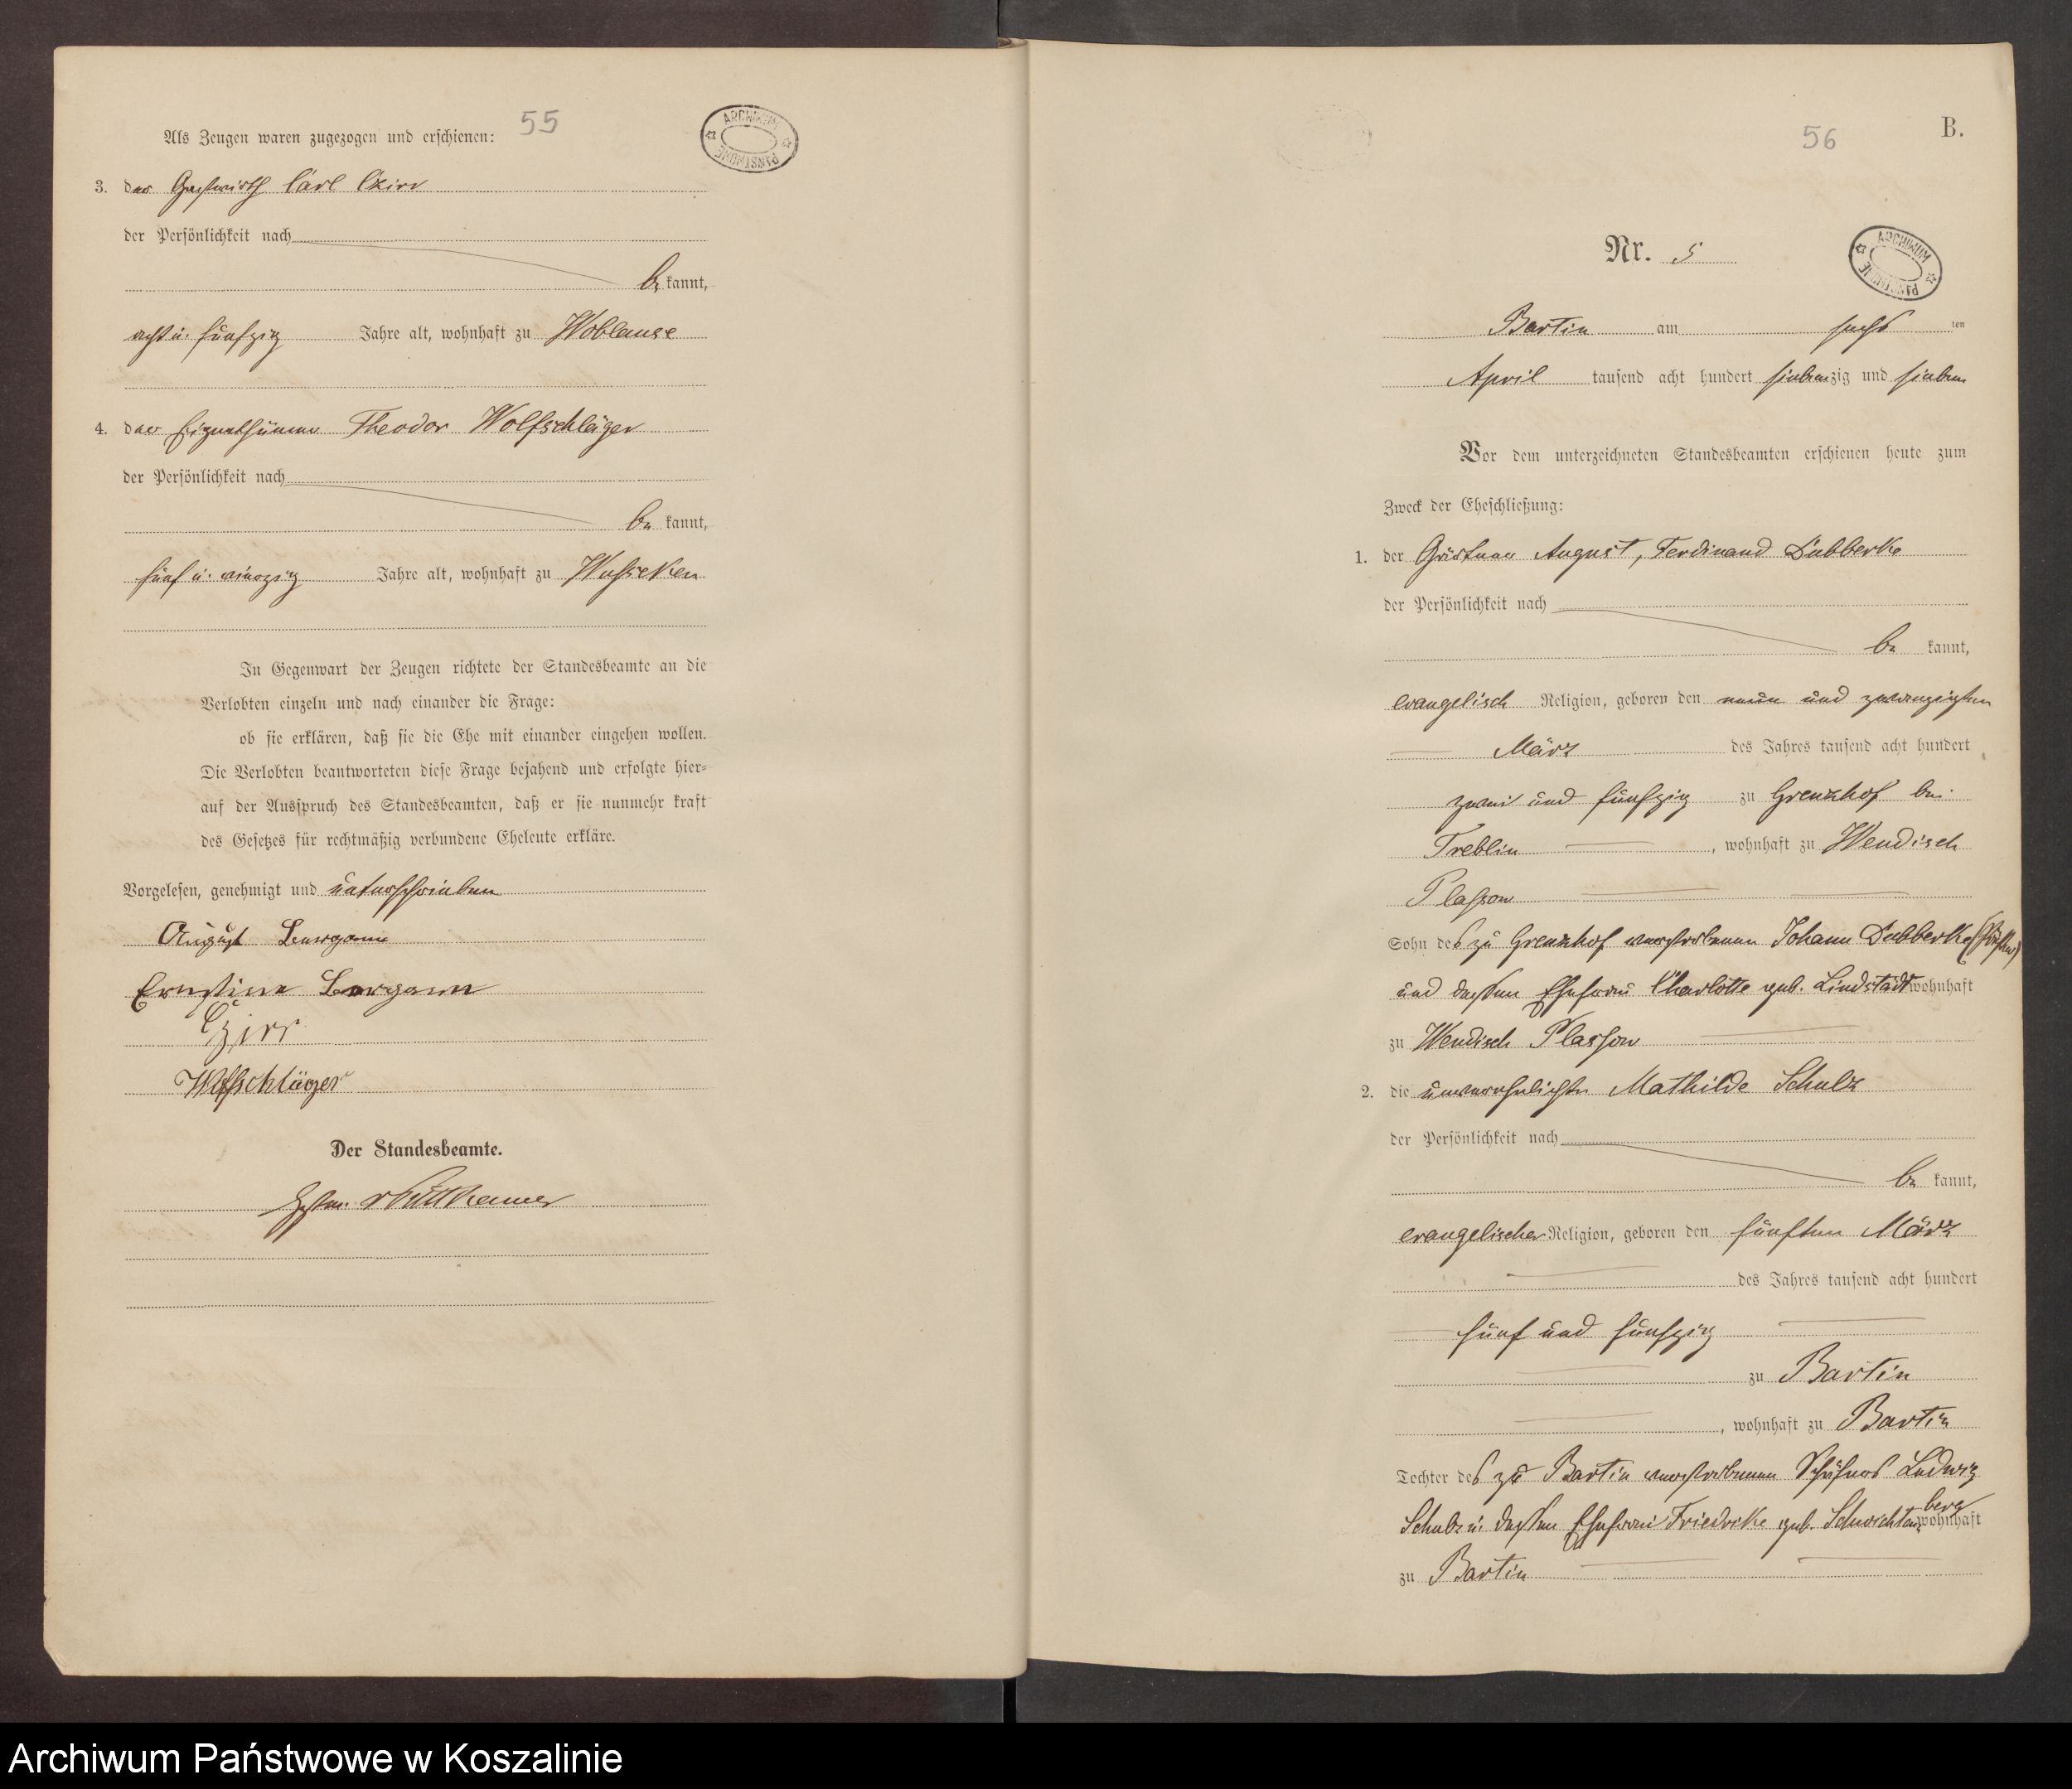 55
Als Zeugen waren zugezogen und erschienen:
ARCHIWUM PAŃSTWOWE
3. der Gastwirth Carl Czirr
der Persönlichkeit nach
be kannt,
acht u. fünfzig Jahre alt, wohnhaft zu Woblanse
4. der Eigenthümer Theodor Wolfschläger
der Persönlichkeit nach
be kannt,
fünf u. vierzig Jahre alt, wohnhaft zu Wusseken
In Gegenwart der Zeugen richtete der Standesbeamte an die
Verlobten einzeln und nach einander die Frage:
ob sie erklären, daß sie die Ehe mit einander eingehen wollen.
Die Verlobten beantworteten diese Frage bejahend und erfolgte hier-
auf der Ausspruch des Standesbeamten, daß er sie nunmehr kraft
des Gesetzes für rechtmäßig verbundene Eheleute erkläre.
Vorgelesen, genehmigt und unterschrieben
August
Ernstine
Czirr
Wolfschläger
Der Standesbeamte.
v Puttkamer
56
B.
Nr. 5
ARCHIWUM PAŃSTWOWE
Bartin am sechs ten
April tausend acht hundert siebenzig und sieben
Vor dem unterzeichneten Standesbeamten erschienen heute zum
Zweck der Eheschließung:
1. der Gärtner August, Ferdinand Dubberke
der Persönlichkeit nach
be kannt,
evangelisch Religion, geboren den neun und zwanzigsten
März des Jahres tausend acht hundert
zwei und fünfzig zu Grenzhof bei
Treblin, wohnhaft zu Wendisch
Plassow
Sohn des zu Grenzhof verstorbenen Johann Dubberke
und dessen Ehefrau Charlotte geb. Lindstädt wohnhaft
zu Wendisch Plassow
2. die unverehelichte Mathilde Schulz
der Persönlichkeit nach
be kannt,
evangelischer Religion, geboren den fünften März
des Jahres tausend acht hundert
fünf und fünfzig
zu Bartin
, wohnhaft zu Bartin
Tochter des zu Bartin verstorbenen Schäfers Ludwig
Schulz u. dessen Ehefrau Friedrike geb. Schwichtenberg wohnhaft
zu Bartin
Archiwum Państwowe w Koszalinie